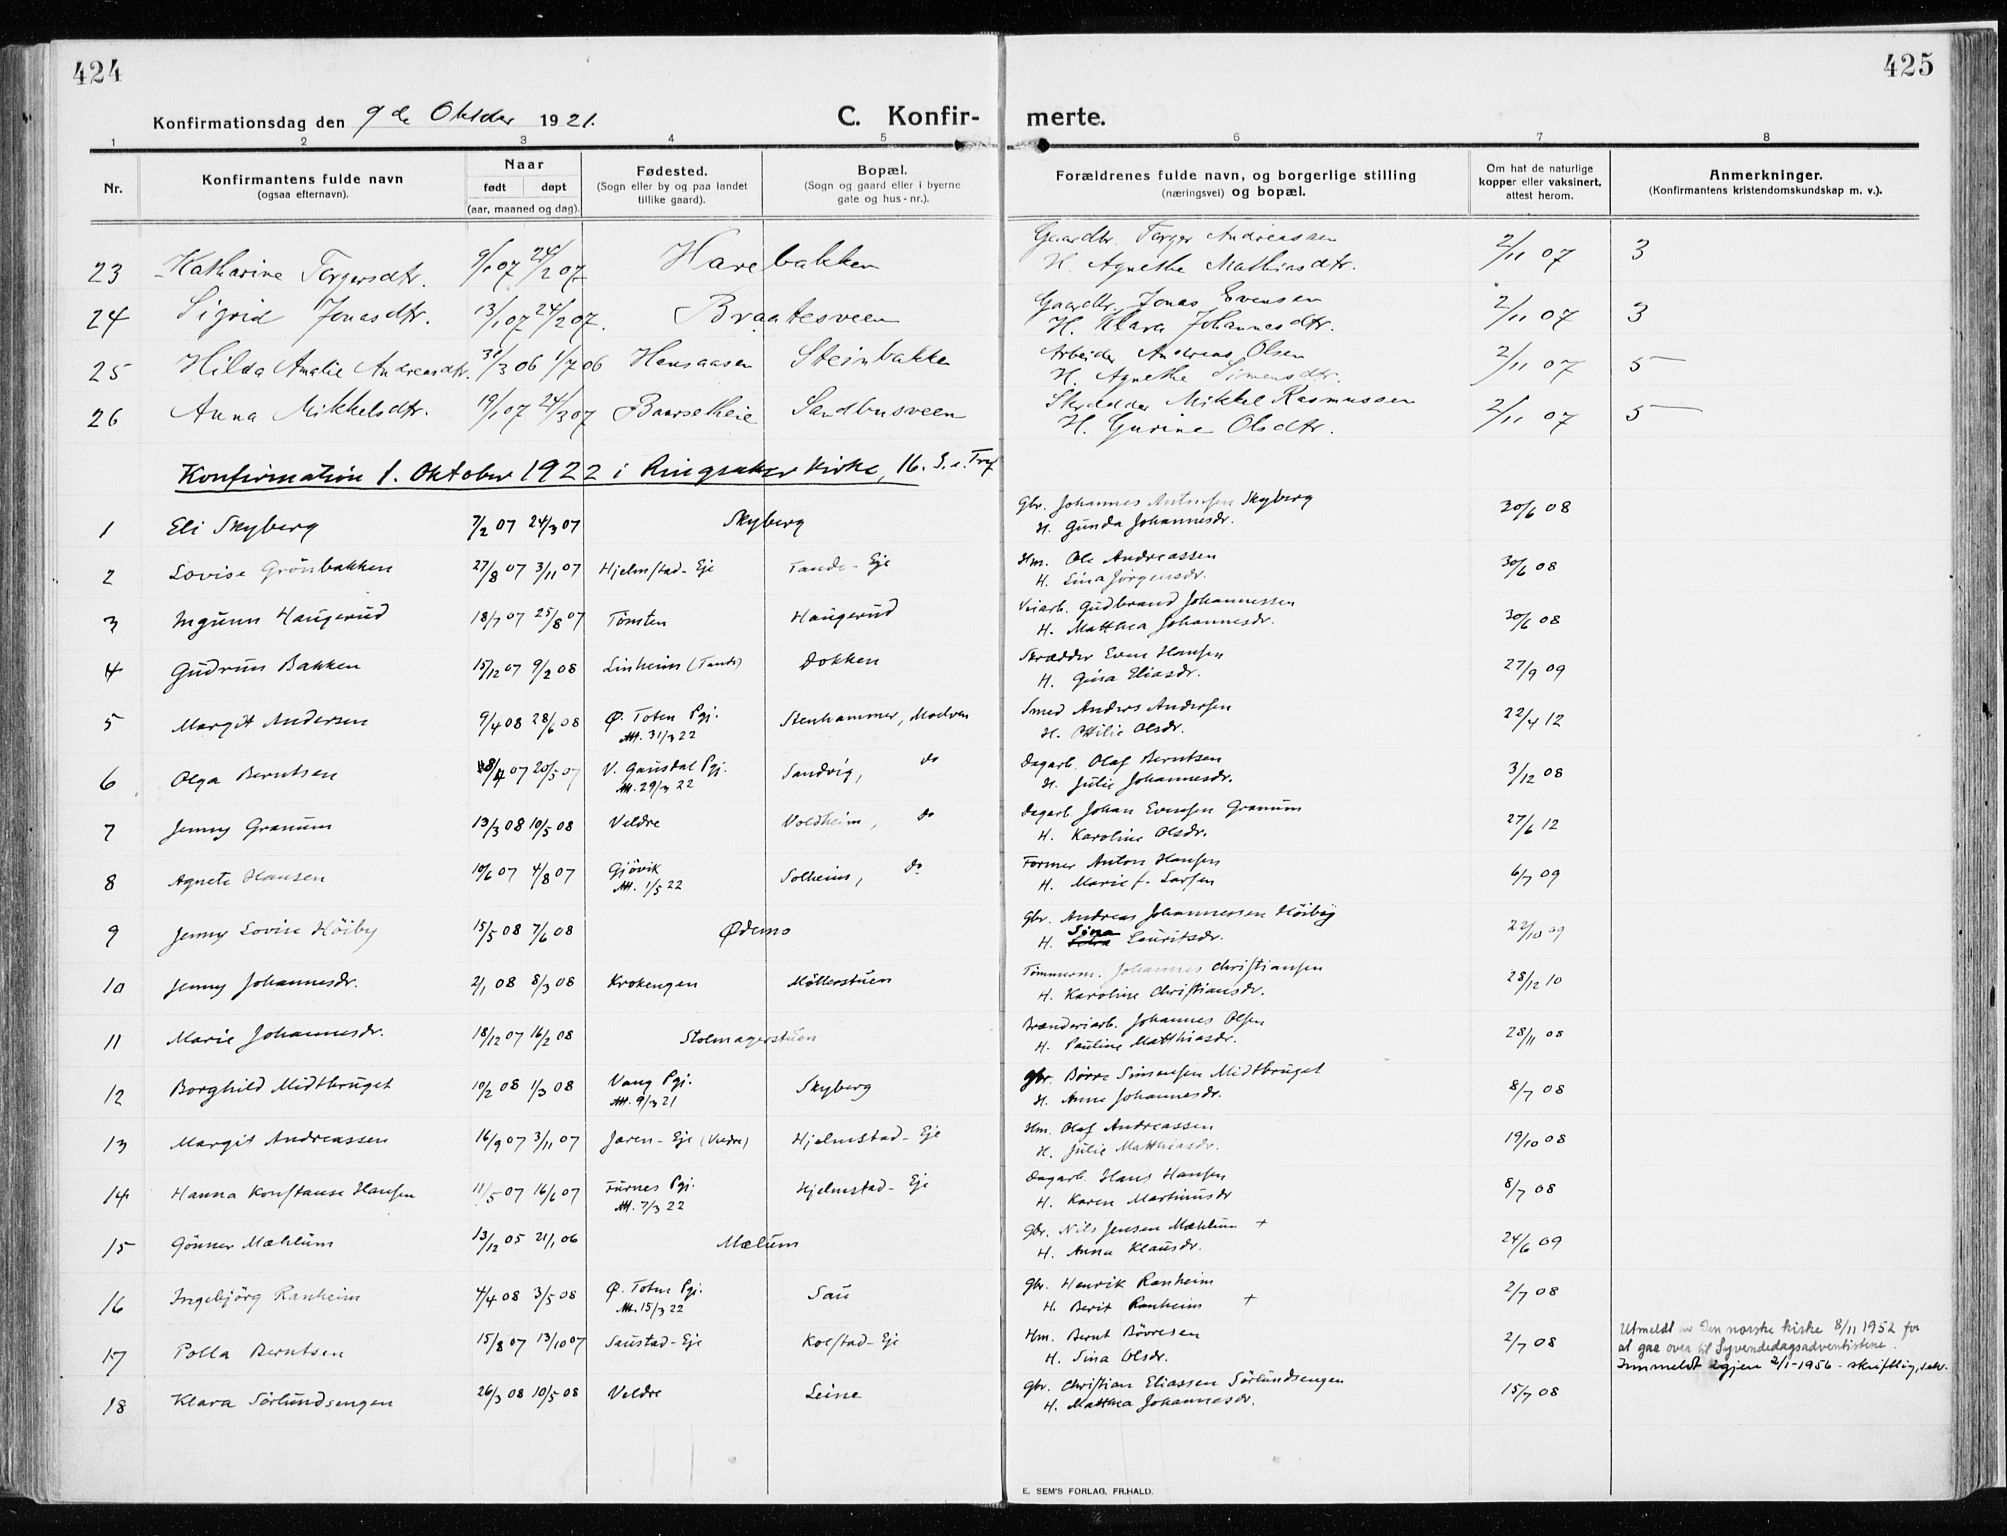 424
425
Konfirmationsdag den 9de Oktober 1921.
C. Konfir-
merte.
1 2 3 4 5 6 7 8
Nr.
Konfirmantens fulde navn
(ogsaa efternavn).
Naar
født døpt
(aar, maaned og dag).
Fødested.
(Sogn eller by og paa landet
tillike gaard).
Bopæl.
(Sogn og gaard eller i byerne
gate og hus-nr.).
Forældrenes fulde navn, og borgerlige stilling
(næringsvei) og bopæl.
Om hat de naturlige
kopper eller vaksinert,
attest herom.
Anmerkninger.
(Konfirmantens kristendomskundskap m. v.).
23 Katharine Torgersdtr. 9/1 07 24/2 07 Harebakken Gaardbr. Torger Andreassen 2/11 07 3
H. Agnethe Mathiasdtr.
24 Sigrid Jonasdtr. 13/1 07 24/2 07. Braatesveen Gaardbr. Jonas Evensen 2/11 07 3
H. Klara Johannesdtr.
25 Hilda Amalie Andreasdtr. 31/3 06 1/7 06 Hensaasen Steinbakken Arbeider Andreas Olsen 2/11 07 5
H. Agnethe Simensdtr.
26 Anna Mikkelsdtr. 19/1 07 24/3 07 Baarsetheie Sandbusveen Skredder Mikkel Rasmussen 2/11 07 5
H. Gurine Olsdtr.
Konfirmation 1. Oktober 1922 i Ringsaker Kirke, 16. S. e. Tref
1 Eli Skyberg 7/2 07 24/3 07 Skyberg Gbr. Johannes Antonsen Skyberg 30/6 08
H. Gunda Johannesdr.
2 Lovise Grönbakken 27/8 07 3/11 07 Hjelmstad-Eje Tande-Eje Hm. Ole Andreassen 30/6 08
H. Lina Jörgensdr.
3 Ingunn Haugerud 18/7 07 25/8 07 Tömten Haugerud Veiarb. Gudbrand Johannessen 30/6 08
H. Matthea Johannesdr.
4 Gudrun Bakken 15/12 07 9/2 08 Linheim (Tande) Dokken Skrædder Even Hansen 27/9 09
H. Gina Eliasdr.
5 Margit Andersen 9/4 08 28/6 08 Ø. Toten Pgj. Stenhammer, Modven Smed Anders Andersen 22/4 12
Att. 31/3 22 H. Otilie Olsdr.
6 Olga Berntsen 8/4 07 20/5 07 V. Gausdal Pgj. Sandvig, do Dagarb. Olaf Berntsen 3/12 08
Att. 29/3 22 H. Julie Johannesdr.
7 Jenny Granum 13/3 08 10/5 08 Veldre Voldheim, do Dagarb. Johan Evensen Granum 27/6 12
H. Karoline Olsdr.
8 Agnete Hansen 10/6 07 4/8 07 Gjövik Solheim, do Former Anton Hansen 6/7 09
Att. 1/5 22 H. Marie f. Larsen
9 Jenny Lovise Höiby 15/5 08 7/6 08 Ødemo Gbr. Andreas Johannessen Höiby 22/10 09
H. Sina Lauritsdr.
10 Jenny Johannesdr. 2/1 08 8/3 08 Krokengen Möllerstuen Tömmerm. Johannes Christiansen 28/12 10
H. Karoline Christiansdr.
11 Marie Johannesdr. 18/12 07 16/2 08 Stolmagerstuen Brænderiarb. Johannes Olsen 28/11 08
H. Pauline Matthiasdr.
12 Borghild Midtbruget 10/2 08 1/3 08 Vang Pgj. Skyberg Gbr. Börre Simensen Midtbruget 8/7 08
Att. 9/3 21 H. Anne Johannesdr.
13 Margit Andreassen 16/9 07 3/11 07 Jaren-Eje (Veldre) Hjelmstad-Eje Hm. Olaf Andreassen 19/10 08
H. Julie Matthiasdr.
14 Hanna Konstanse Hansen 11/5 07 16/6 07 Furnes Pgj. Hjelmstad-Eje Dagarb. Hans Hansen 8/7 08
Att. 7/3 22 H. Karen Martinusdr
15 Gönner Mæhlum 13/12 05 21/1 06 Mælum Gbr. Nils Jensen Mæhlum + 24/6 09
H. Anna Klausdr.
16 Ingebjörg Ranheim 4/4 08 3/5 08 Ø. Toten Pgj. Sau Gbr. Henrik Ranheim 2/7 08
Att. 15/3 22 H. Berit Ranheim +
17 Polla Berntsen 15/8 07 13/10 07 Saustad-Eje Kolstad-Eje Hm. Bernt Bövresen 2/7 08 Utmeldt av Den norske kirke 8/11 1952 for
H. Sina Olsdr. at gaa over til Syvendedagsadventistene.
Innmeldt igjen 2/1-1956 - skriftlig,
18 Klara Sörlundsengen 26/3 08 10/5 08 Veldre Leine Gbr. Christian Eliassen Sörlundsengen 15/7 08
H. Matthea Johannesdr.
E. SEM'S FORLAG, FR.HALD.